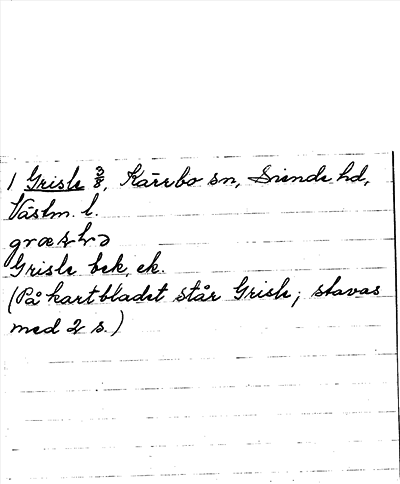 1 Grisle 3/8, Kärrbo sn, Siende hd,
Västm. l.
Grisle bek, ek.
(På kartbladet står Grisle; stavas
med 2 s.)